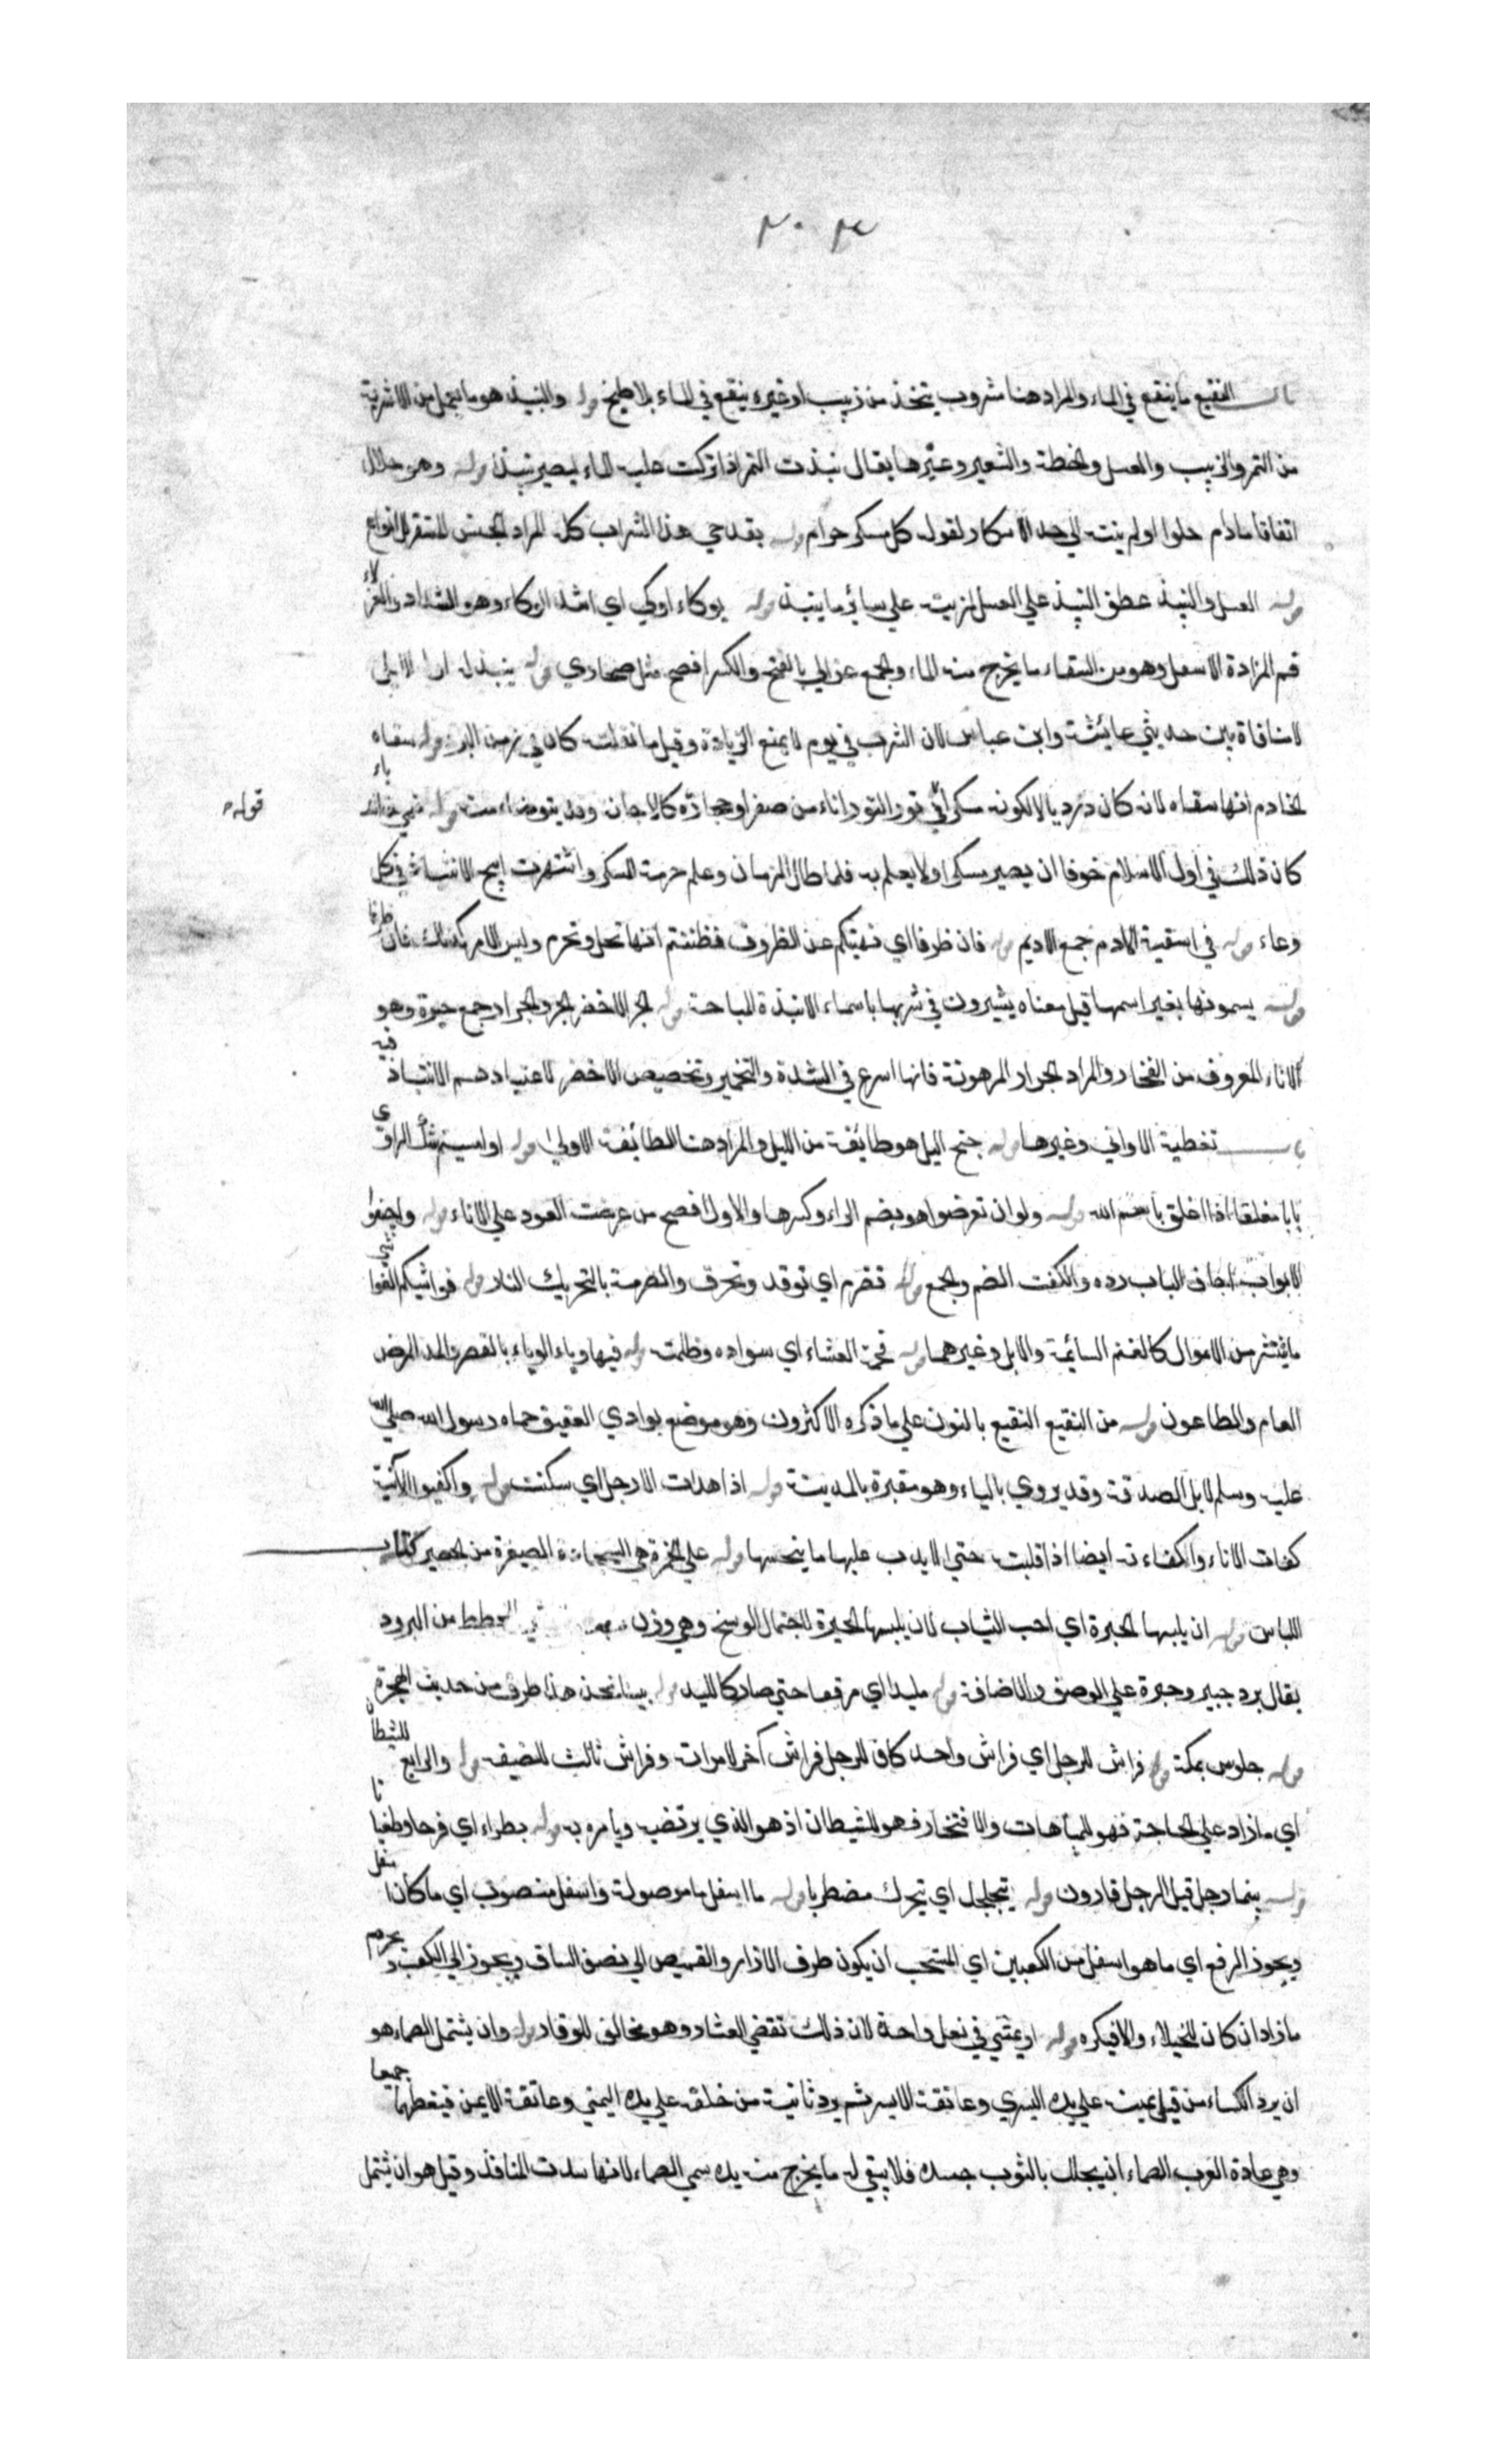 باب النقيع ما ينقع في الماء والمراد هنا مشروب يتخذ من زبيب او غيره ينقع في الماء بلا طبخ قوله والنبيذ هو ما يعمل من الاشربة
من التمر والزبيب والعسل والحنطة والشعير وغيرها يقال نبذت التمر اذا تركت عليه الماء ليصير نبيذا قوله وهو حلال
اتفاقا مادام حلوا ولم ينته الي حد الاسكار لقوله كل مسكر حرام قوله بقدحي هذا الشراب كله المراد الجنس المستغرق لانواع
قوله العسل والنبيذ عطف النبيذ علي العسل لمزيته علي سائر ما ينبذ قوله يوكاء اوكي اي اشد الوكاء وهو الشداد والعزلاء
فم المزادة الاسفل وهو من السقاء ما يخرج منه الماء والجمع عزالي بالفتح والكسر افصح مثل صحاري قوله ينبذ له
لا منافاة بين حديثي عايشة وابن عباس لان الشرب في يوم لا يمنع الزيادة وقيل ما نقلته كان في زمن البرد قوله سقاه
الخادم انما سقاه لانه كان درديا لا لكونه مسكرا قوله في تور التور اناء من صفر او حجارة كالاجان وقد يتوضا منه قوله
كان ذلك في اول الاسلام خوفا ان يصير مسكرا ولا يعلم به فلما طال الزمان وعلم حرمة المسكر واشتهرت ابيح الانتباذ في كل
وعاء قوله في اسقية الادم جمع الاديم قوله فان ظرفا اي نهيتكم عن الظروف فظننتم انها تحل وتحرم وليس الامر كذلك فان ظرفا
قوله يسمونها بغير اسمها قيل معناه يشيرون في شربها باسماء الانبذة المباحة قوله الجر الاخضر الجر والجرار جمع جرة وهو
الاناء المعروف من الفخار والمراد الجرار المدهونة فانها اسرع في الشدة والتخمير وتخصيص الاخضر لاعتيادهم الانتباذ فيه
باب تغطية الاواني وغيرها قوله جنح اليل هو طايفة من الليل والمراد هنا الطائفة الاولي قوله او امسيتم شك الراوي
بابا مغلقا اذا اغلق باسم الله قوله ولو ان تعرضوا هو بضم الراء وكسرها والاول افصح من عرضت العود علي الاناء قوله واجيفوا
الابواب اجاف الباب رده والكفت الضم والجمع قوله تضرم اي توقد وتحرق والضرمة بالتحريك النار قوله فواشيكم الفواشي
ما ينتشر من الاموال كالغنم السائمة والابل وغيرهما قوله فحمة العشاء اي سواده وظلمته قوله فيها وباء الوباء بالقصر والمد المرض
العام والطاعون قوله من النقيع النقيع بالنون علي ما ذكره الاكثرون وهو موضع بوادي العقيق حماه رسول الله صلي الله
عليه وسلم لابل الصدقة وقد يروي بالباء وهو مقبرة بالمدينة قوله اذا هدات الارجل اي سكنت قوله واكفيوا الآنية
كفات الاناء واكفاءته ايضا اذا قلبته حتي لا يدب عليها ما ينجسها قوله علي الخمرة هي السجادة الصغيرة من الحصير كتاب
اللباس قوله ان يلبسها الحبرة اي احب الثياب لان يلبسها الحبرة لاحتمال الوسخ وهي وزن المخطط من البرود
يقال برد حبير وحبرة علي الوصف والاضافة قوله ملبدا اي مرقعا حتي صار كاللبد قوله بينا نحن هذا طرف من حديث الهجرة
قوله جلوس بمكة قوله فراش للرجل اي فراش واحد كاف للرجل فراش آخر لامراته وفراش ثالث للضيف قوله والرابع للشيطان
اي ما زاد علي الحاجة فهو للمباهات والافتخار فهو للشيطان اذ هو الذي يرتضيه ويامره به قوله بطرا اي فرحا وطغيانا
قوله بينما رجل قيل الرجل قارون قوله يتجلجل اي يتحرك مضطربا قوله ما اسفل ما موصولة واسفل منصوب اي ما كان اسفل
ويجوز الرفع اي ما هو اسفل من الكعبين اي المستحب ان يكون طرف الازار والقميص الي نصف الساق ويجوز الي الكعب ويحرم
ما زاد ان كان للخيلاء والا فيكره قوله او يمشي في نعل واحدة لان ذلك تقضي العشار وهو مخالف للوقار قوله وان يشتمل الصماء هو
ان يرد الكساء من قبل يمينه علي يده اليسري وعاتقه الايسر ثم يرد ثانية من خلفه علي يده اليمني وعاتقه الايمن فيغطيهما جميعا
وهي عادة العرب الصماء ان يجلل بالثوب جسده فلا يبقي له ما يخرج منه يده سمي الصماء لانها سدت المنافذ وقيل هو ان يشتمل
قوله